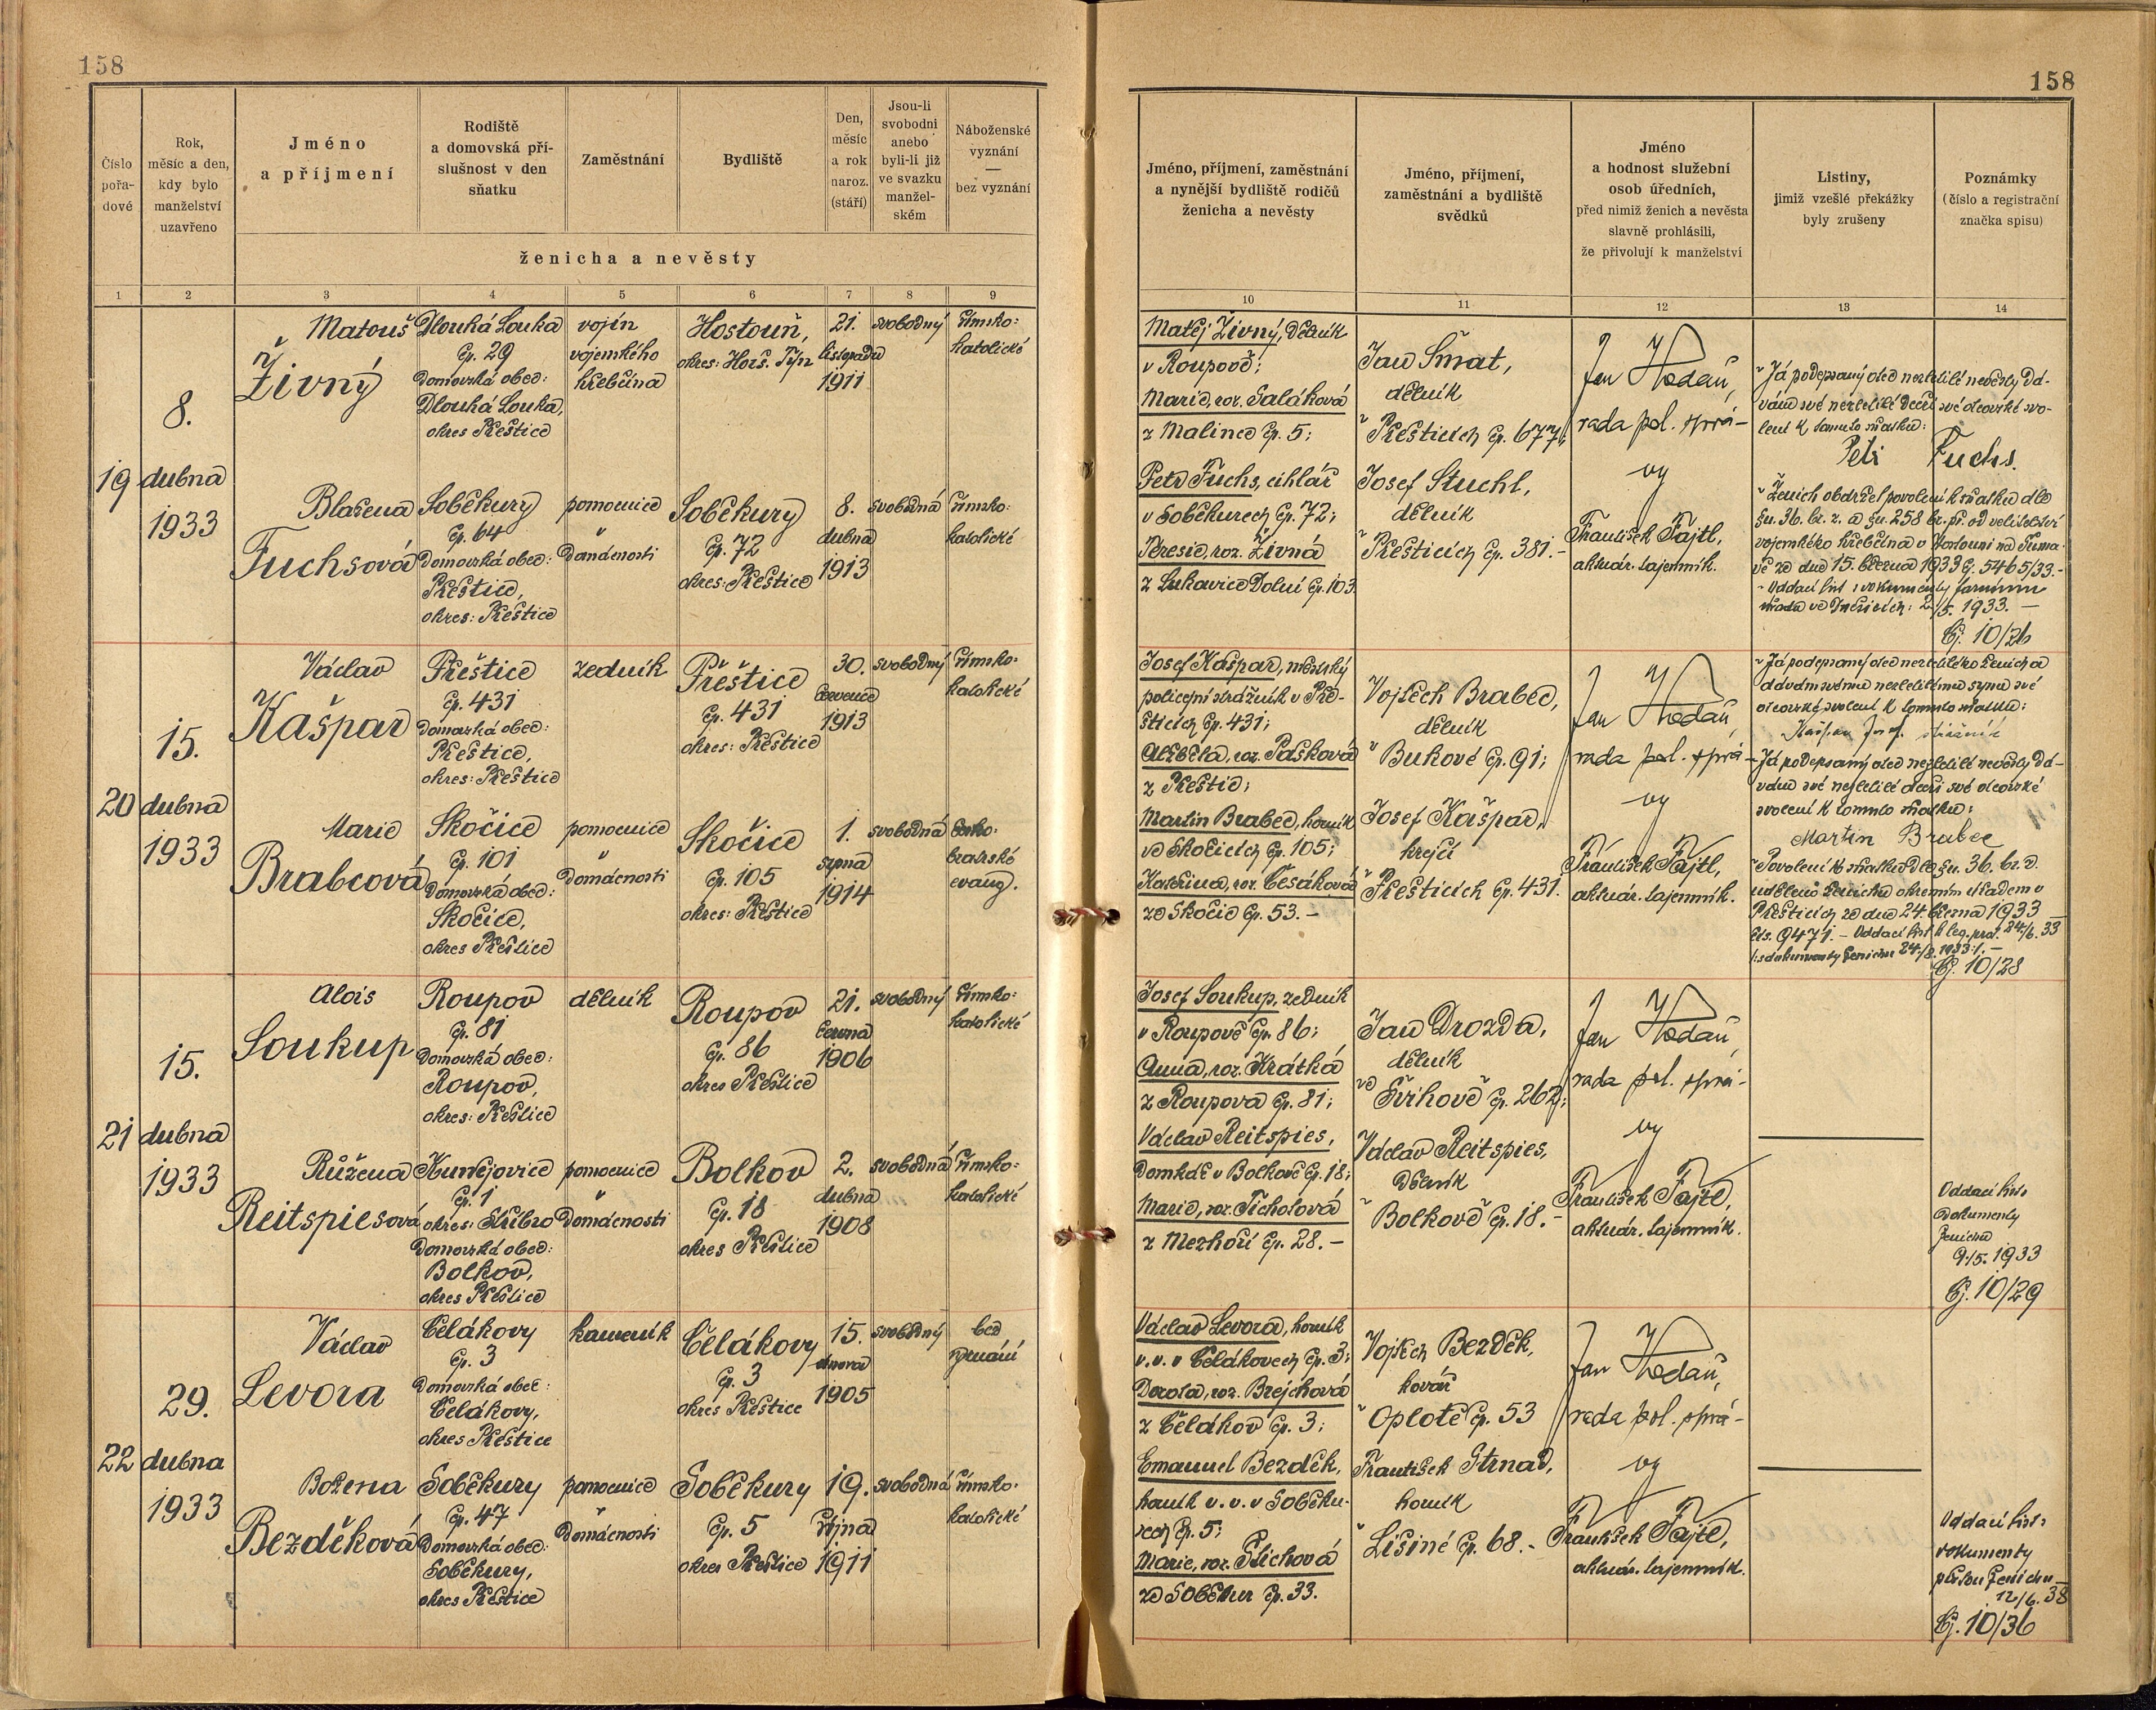 158
158
Číslo
pořa-
dové
Rok,
měsíc a den,
kdy bylo
manželství
uzavřeno
Jméno
a příjmení
Rodiště
a domovská pří-
slušnost v den
sňatku
Zaměstnání
Bydliště
Den,
měsíc
a rok
naroz.
(stáří)
Jsou-li
svobodni
anebo
byli-li již
ve svazku
manžel-
ském
Náboženské
vyznání
—
bez vyznání
ženicha a nevěsty
1 2 3 4 5 6 7 8 9
Jméno, příjmení, zaměstnání
a nynější bydliště rodičů
ženicha a nevěsty
Jméno, příjmení,
zaměstnání a bydliště
svědků
Jméno
a hodnost služební
osob úředních,
před nimiž ženich a nevěsta
slavně prohlásili,
že přivolují k manželství
Listiny,
jimiž vzešlé překážky
byly zrušeny
Poznámky
(číslo a registrační
značka spisu)
10 11 12 13 14
19
8.
dubna
1933
Matouš
Živný
Dlouhá Louka
čp. 29
Domovská obec:
Dlouhá Louka,
okres Přeštice
vojín
vojenského
hřebčína
Hostouň,
okres: Horš. Týn
21.
listopadu
1911
svobodný
římsko-
katolické
Blažena
Fuchsová
Soběkury
čp. 64
Domovská obec:
Přeštice,
okres: Přeštice
pomocnice
v
domácnosti
Soběkury
čp. 72
okres: Přeštice
8.
dubna
1913
svobodná
římsko-
katolické
Matěj Živný, dělník
v Roupově;
Marie, roz. Saláková
z Malince čp. 5;
Petr Fuchs, cihlář
v Soběkurech čp. 72;
Teresie, roz. Živná
z Lukavice Dolní čp. 103.
Jan Šmat,
dělník
v Přešticích čp. 677;
Josef Stuchl,
dělník
v Přešticích čp. 381.-
Jan Hodaň,
rada pol. sprá-
vy
František Fajtl,
aktuár. tajemník.
Já podepsaný otec nezletilé nevěsty dá-
vám své nezletilé dceři své otcovské svo-
lení k tomuto sňatku:
Petr Fuchs.
Ženich obdržel povolení k sňatku dle
§u. 36. br. z. a §u. 258 br. př. od velitelství
vojenského hřebčína v Hostouni na Šuma-
vě ze dne 15. března 1933 čj. 5465/33.-
Oddací list
2/5. 1933. —
Čj. 10/26
20
15.
dubna
1933
Václav
Kašpar
Přeštice
čp. 431
Domovská obec:
Přeštice,
okres: Přeštice
zedník
Přeštice
čp. 431
okres: Přeštice
30.
července
1913
svobodný
římsko-
katolické
Marie
Brabcová
Skočice
čp. 101
Domovská obec:
Skočice,
okres Přeštice
pomocnice
v
domácnosti
Skočice
čp. 105
okres: Přeštice
1.
srpna
1914
svobodná
česko-
bratrské
evang.
Josef Kašpar, městský
policejní strážník v Pře-
šticích čp. 431;
Alžběta, roz. Pašková
z Přeštic;
Martin Brabec, horník
ve Skočicích čp. 105;
Kateřina, roz. Česáková
ze Skočic čp. 53.-
Vojtěch Brabec,
dělník
v Bukové čp. 91;
Josef Kašpar,
krejčí
v Přešticích čp. 431.
Jan Hodaň,
rada pol. sprá-
vy
František Fajtl,
aktuár. tajemník.
Já podepsaný otec nezletilého ženicha
dávám svému nezletilému synu své
otcovské svolení k tomuto sňatku:
Kašpar Josef strážník
Já podepsaný otec nezletilé nevěsty dá-
vám své nezletilé dceři své otcovské
svolení k tomuto sňatku:
Martin Brabec
Povolení k sňatku dle §u. 36. br. z.
uděleno ženichu okresním úřadem v
Přešticích ze dne 24. března 1933
čís. 9471. - Oddací list k leg. prot. 24/6. 33
dokumenty ženichu 24/8. 1933. —
Čj. 10/28
21
15.
dubna
1933
Alois
Soukup
Roupov
čp. 81
Domovská obec:
Roupov,
okres: Přeštice
dělník
Roupov
čp. 86
okres Přeštice
21.
června
1906
svobodný
římsko-
katolické
Růžena
Reitspiesová
Hunějovice
čp. 1
okres: Stříbro
Domovská obec:
Bolkov,
okres Přeštice
pomocnice
v
domácnosti
Bolkov
čp. 18
okres Přeštice
2.
dubna
1908
svobodná
římsko-
katolické
Josef Soukup, zedník
v Roupově čp. 86;
Anna, roz. Krátká
z Roupova čp. 81;
Václav Reitspies,
domkář v Bolkově čp. 18;
Marie, roz. Tichotová
z Mezhoří čp. 28.-
Jan Drozda,
dělník
ve Švihově čp. 262;
Václav Reitspies,
dělník
v Bolkově čp. 18.-
Jan Hodaň,
rada pol. sprá-
vy
František Fajtl,
aktuár. tajemník.
Oddací list
dokumenty
ženichu
9/5. 1933
Čj. 10/29
22
29.
dubna
1933
Václav
Levora
Čelákovy
čp. 3
Domovská obec:
Čelákovy,
okres Přeštice
kameník
Čelákovy
čp. 3
okres Přeštice
15.
února
1905
svobodný
bez
vyznání
Božena
Bezděková
Soběkury
čp. 47
Domovská obec:
Soběkury,
okres Přeštice
pomocnice
v
domácnosti
Soběkury
čp. 5
okres Přeštice
19.
října
1911
svobodná
římsko-
katolické
Václav Levora, horník
v. v. v Čelákovech čp. 3;
Dorota, roz. Brejchová
z Čelákov čp. 3;
Emanuel Bezděk,
horník v. v. v Soběku-
rech čp. 5;
Marie, roz. Šlichová
ze Soběkur čp. 33.
Vojtěch Bezděk,
kovář
v Oplotě čp. 53
František Strnad,
horník
v Lišiné čp. 68.-
Jan Hodaň,
rada pol. sprá-
vy
František Fajtl,
aktuár. tajemník.
Oddací list
dokumenty
ženichu
12/6. 38
Čj. 10/36